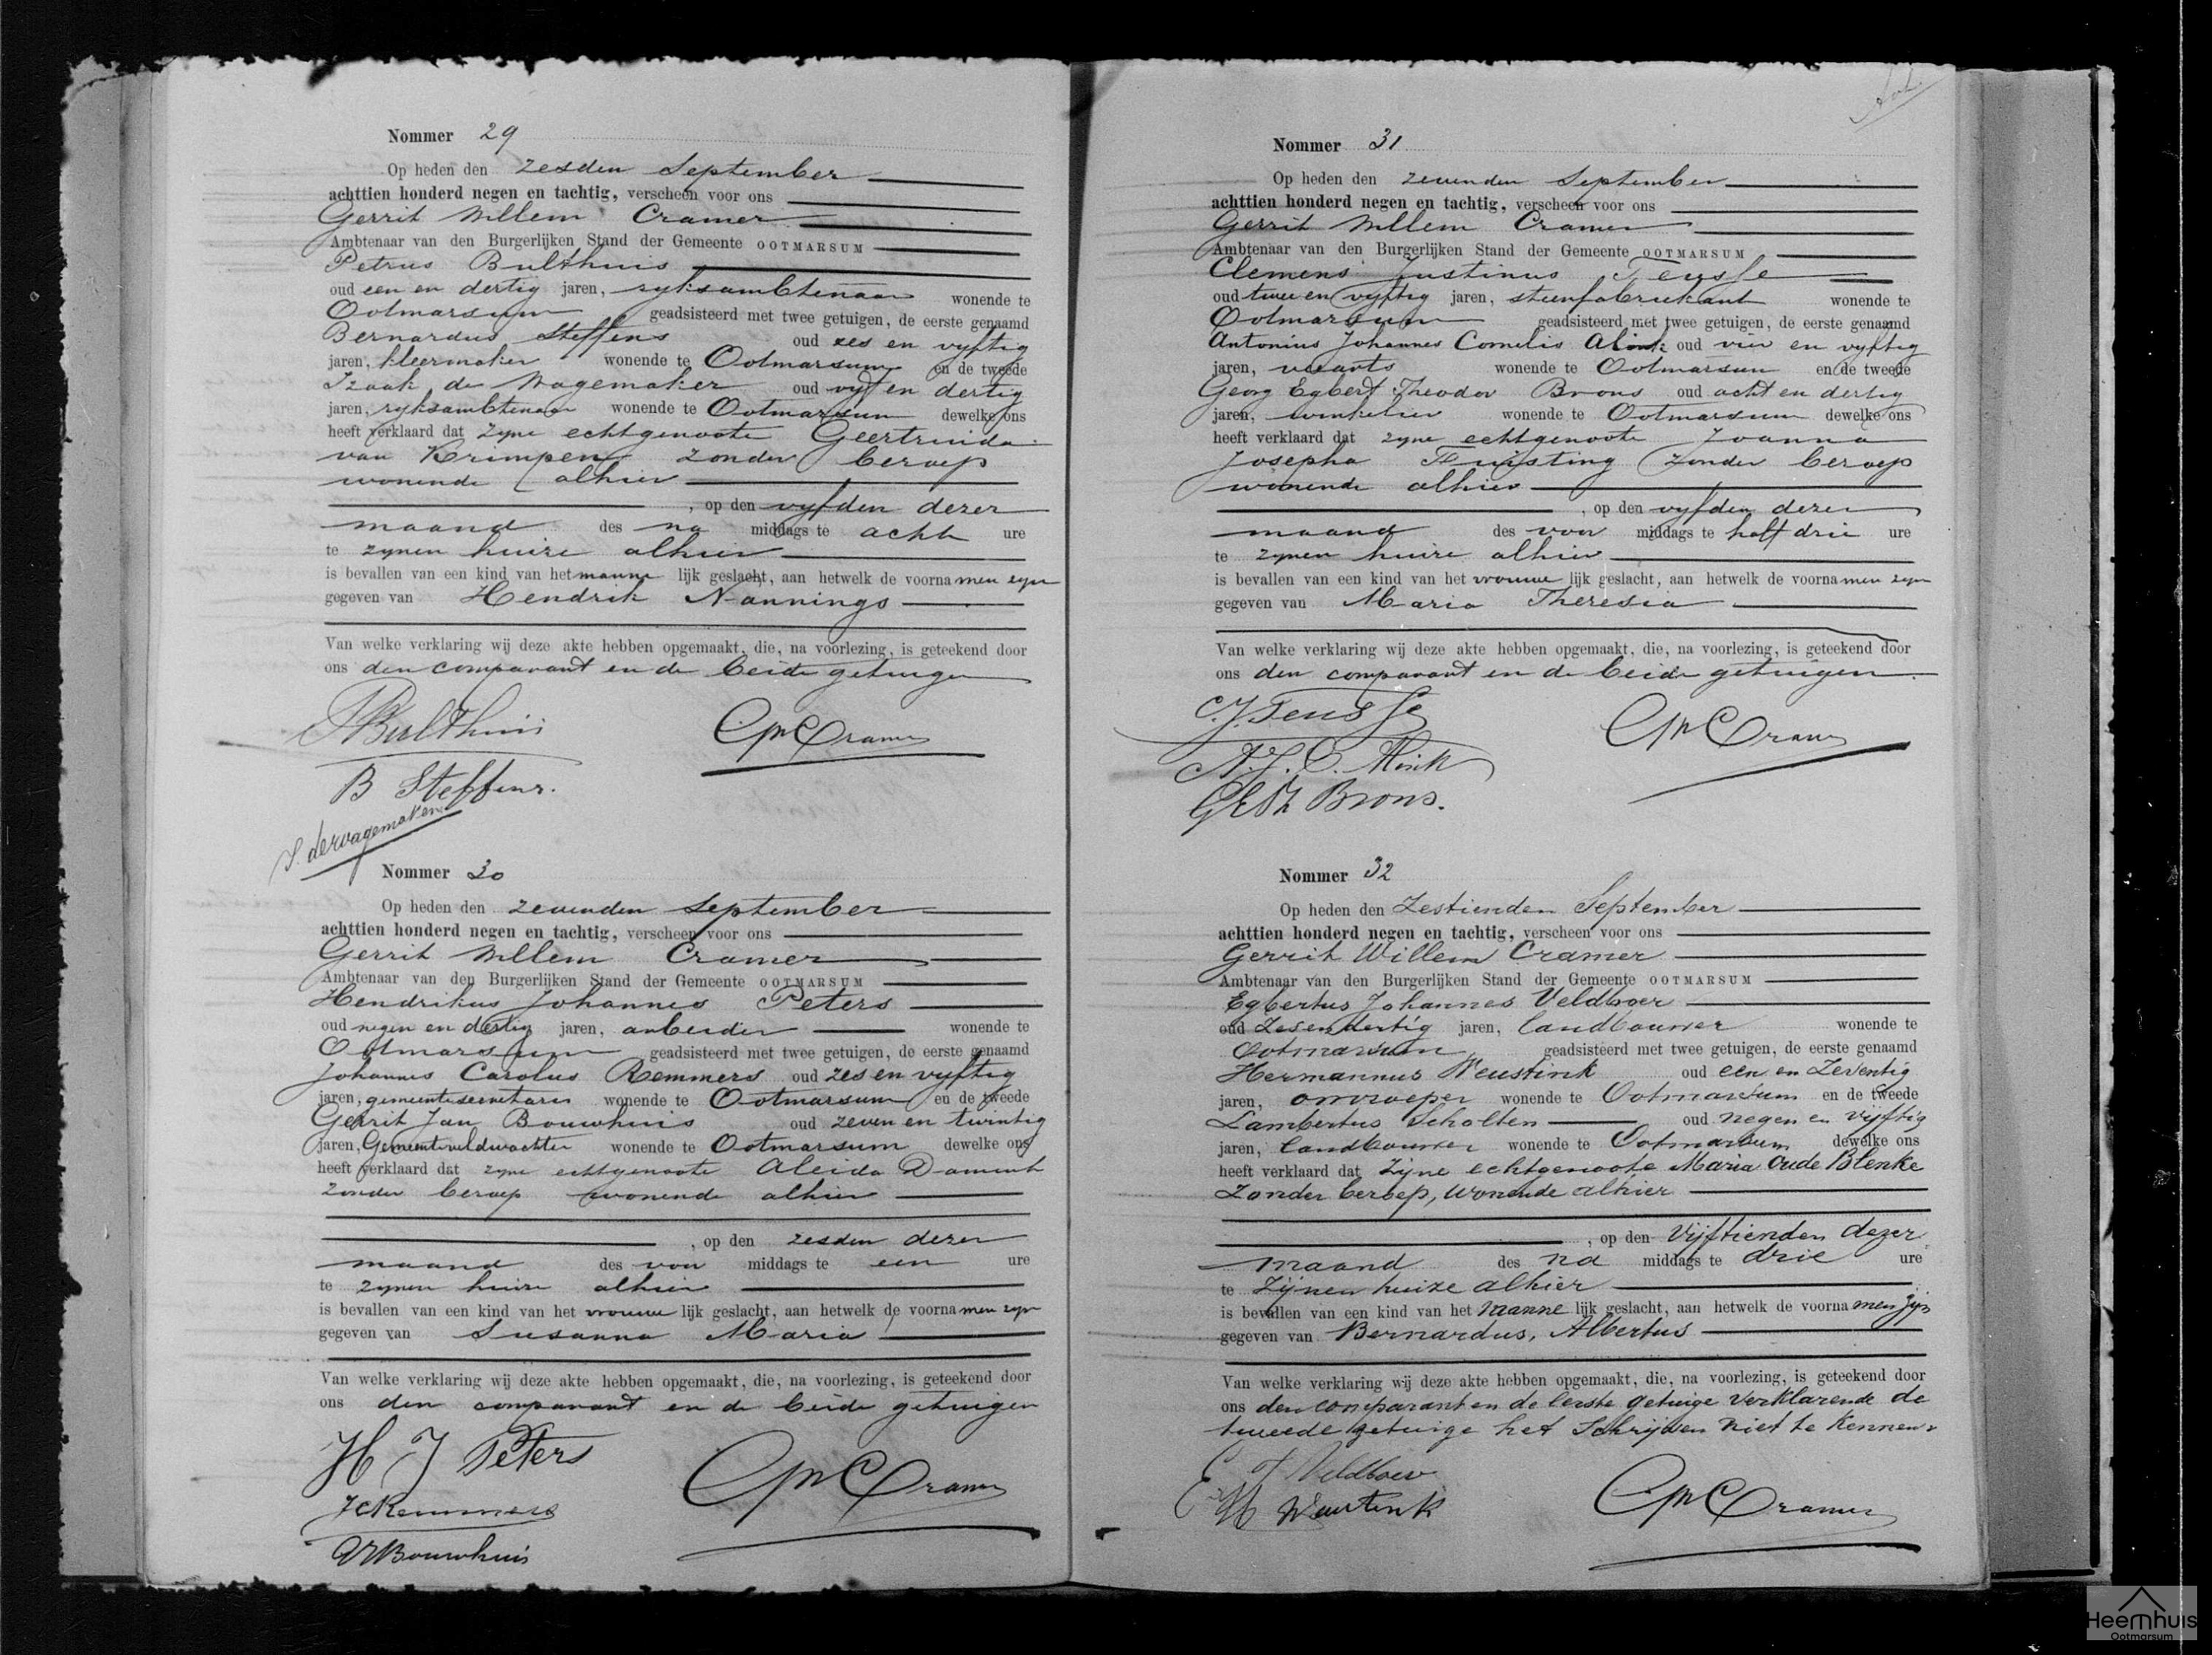 Nommer 29
Op heden den zesden September
achttien honderd negen en tachtig, verscheen voor ons
Gerrit Willem Cramer
Ambtenaar van den Burgerlijken Stand der Gemeente OOTMARSUM
Petrus Bulthuis
oud een en dertig jaren, ryksambtenaar wonende te
Ootmarsum geadsisteerd met twee getuigen, de eerste genaamd
Bernardus Steffens oud zes en vyftig
jaren, kleermaker wonende te Ootmarsum en de tweede
Izaak de Wagemaker oud vyf en dertig
jaren, ryksambtenaar wonende te Ootmarsum dewelke ons
heeft verklaard dat zyne echtgenoote Geertruida
van Krimpen zonder beroep
wonende alhier
, op den vyfden dezer
maand des na middags te acht ure
te zynen huize alhier
is bevallen van een kind van het manne lijk geslacht, aan hetwelk de voorna men zyn
gegeven van Hendrik Nannings
Van welke verklaring wij deze akte hebben opgemaakt, die, na voorlezing, is geteekend door
ons den comparant en de beide getuigen
PBulthuis
GWCramer
B Steffens.
I. de Wagemaker
Nommer 30
Op heden den zevenden September
achttien honderd negen en tachtig, verscheen voor ons
Gerrit Willem Cramer
Ambtenaar van den Burgerlijken Stand der Gemeente OOTMARSUM
Hendrikus Johannes Peters
oud negen en dertig jaren, arbeider wonende te
Ootmarsum geadsisteerd met twee getuigen, de eerste genaamd
Johannes Carolus Remmers oud zes en vyftig
jaren, gemeentesecretaris wonende te Ootmarsum en de tweede
Gerrit Jan Bouwhuis oud zeven en twintig
jaren, Gemeenteveldwachter wonende te Ootmarsum dewelke ons
heeft verklaard dat zyne echtgenoote Aleida
zonder beroep wonende alhier
, op den zesden dezer
maand des voor middags te een ure
te zynen huize alhier
is bevallen van een kind van het vrouwe lijk geslacht, aan hetwelk de voorna men zyn
gegeven van Susanna Maria
Van welke verklaring wij deze akte hebben opgemaakt, die, na voorlezing, is geteekend door
ons den comparant en de beide getuigen
H J Peters
GWCramer
JCRemmers
GJBouwhuis
Nommer 31
Op heden den zevenden September
achttien honderd negen en tachtig, verscheen voor ons
Gerrit Willem Cramer
Ambtenaar van den Burgerlijken Stand der Gemeente OOTMARSUM
Clemens Justinus Teusse
oud twee en vyftig jaren, steenfabrikant wonende te
Ootmarsum geadsisteerd met twee getuigen, de eerste genaamd
Antonius Johannes Cornelis Alink oud vier en vyftig
jaren, veearts wonende te Ootmarsum en de tweede
Georg Egbert Theodor Brons oud acht en dertig
jaren, winkelier wonende te Ootmarsum dewelke ons
heeft verklaard dat zyne echtgenoote Joanna
Josepha zonder beroep
wonende alhier
, op den vyfden dezer
maand des voor middags te half drie ure
te zynen huize alhier
is bevallen van een kind van het vrouwe lijk geslacht, aan hetwelk de voorna men zyn
gegeven van Maria Theresia
Van welke verklaring wij deze akte hebben opgemaakt, die, na voorlezing, is geteekend door
ons den comparant en de beide getuigen
C.J. Teusse
GWCramer
A.J.C. Alink
GETh Brons.
Nommer 32
Op heden den Zestienden September
achttien honderd negen en tachtig, verscheen voor ons
Gerrit Willem Cramer
Ambtenaar van den Burgerlijken Stand der Gemeente OOTMARSUM
Egbertus Johannes Veldboer
oud zes en dertig jaren, landbouwer wonende te
Ootmarsum geadsisteerd met twee getuigen, de eerste genaamd
Hermannus Neustink oud een en Zeventig
jaren, omroeper wonende te Ootmarsum en de tweede
Lambertus Scholten oud negen en vijftig
jaren, landbouwer wonende te Ootmarsum dewelke ons
heeft verklaard dat Zijne echtgenoote Maria Oude Blenke
Zonder beroep, wonende alhier
, op den Vijftienden dezer
maand des na middags te drie ure
te Zijnen huize alhier
is bevallen van een kind van het manne lijk geslacht, aan hetwelk de voorna men zijn
gegeven van Bernardus, Albertus
Van welke verklaring wij deze akte hebben opgemaakt, die, na voorlezing, is geteekend door
ons den comparant en de eerste getuige verklarende de
tweede getuige het Schrijven niet te kennen
E J Veldboer
GWCramer
H Neustink
Heemhuis
Ootmarsum